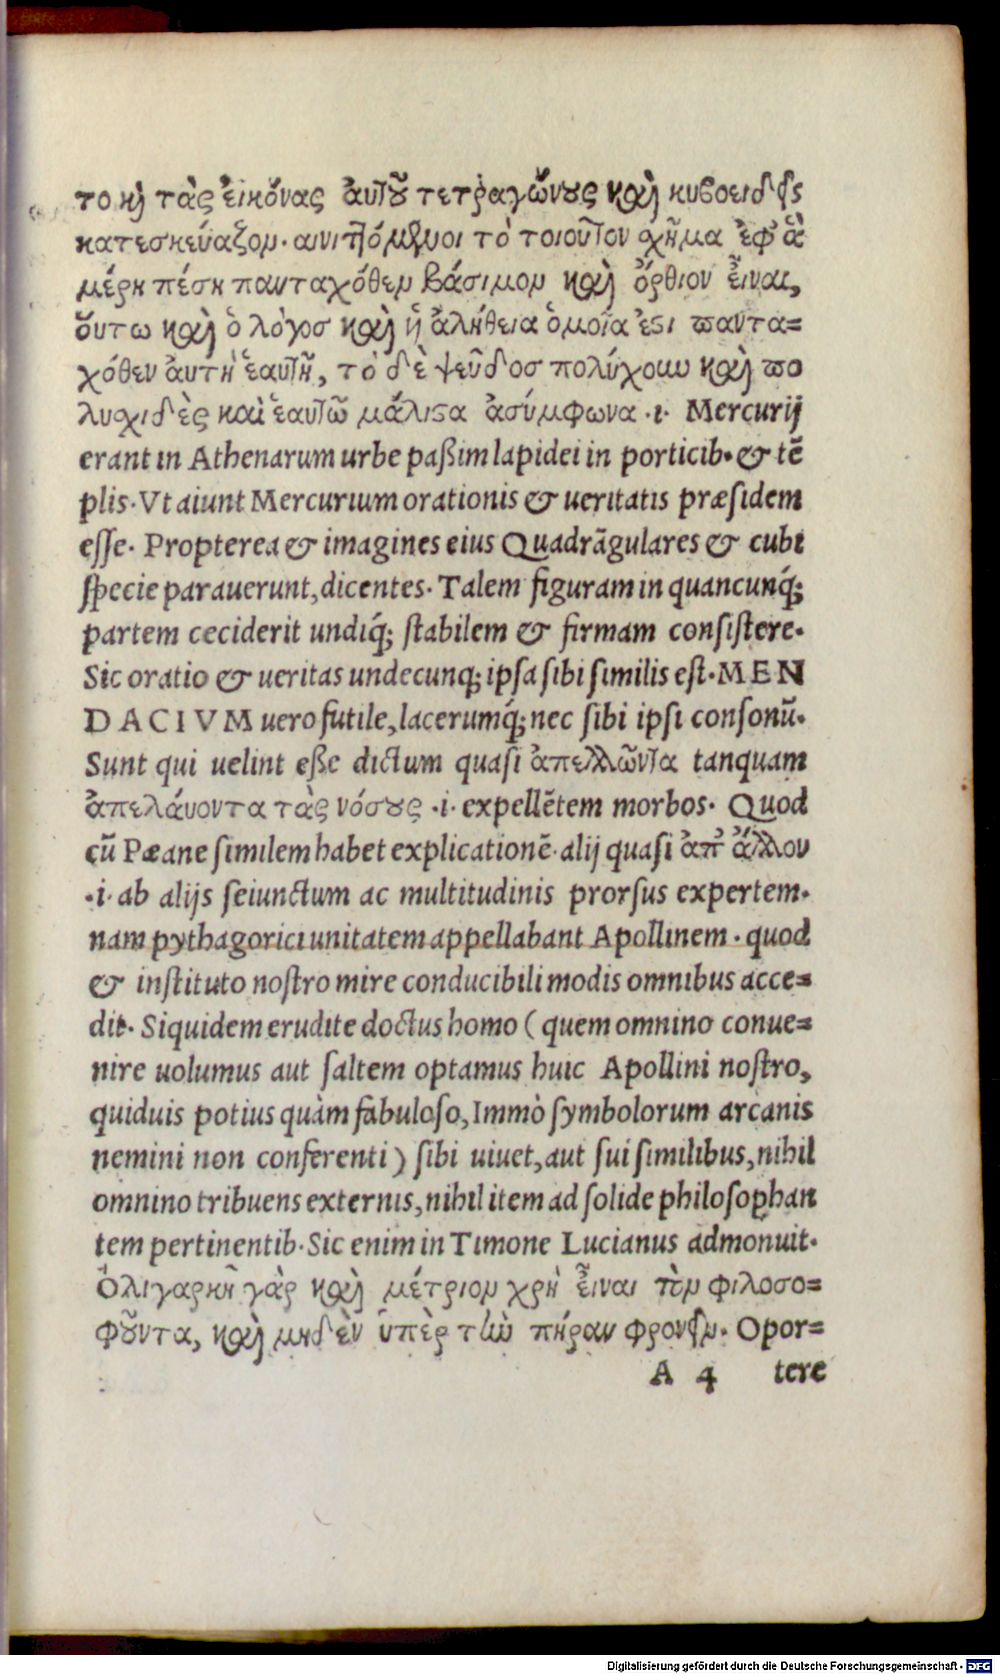 το κὶ τὰς ἐικόνας ἀυτοῦ τετραγώνους καὶ κυβοειδεῖς
κατεσκεύαζον· αινιττόμενοι τὸ τοιοῦτον χῆμα ἐφ᾽ ἃ
μέρη πέσῃ πανταχόθεν βάσιμον καὶ ὄρθιον εἶναι,
ὅυτω καὶ ὁ λόγοσ καὶ ἡ ἀλήθεια ὁμοῖα ἐϛι παντα=
χόθεν ἀυτὴ ἑαυτῇ, τὸ δὲ ψεῦδοσ πολύχουν καὶ πο
λυχιδὲς καὶ ἑαυτῶ μάλιϛα ἀσύμφωνα ·i· Mercurij
erant in Athenarum urbe paßim lapidei in porticib· & tē
plis· Vt aiunt Mercurium orationis & ueritatis præſidem
eſſe· Propterea & imagines eius Quadrāgulares & cubi
ſpecie parauerunt, dicentes· Talem figuram in quancunq́;
partem ceciderit undiq́; ſtabilem & firmam conſiſtere·
Sic oratio & ueritas undecunq; ipſa ſibi ſimilis eſt· MEN
DACIVM uero futile, lacerumq́; nec ſibi ipſi conſonū·
Sunt qui uelint eße dictum quaſi ἀπελλῶντα tanquam
ἀπελάυοντα τὰς νόσους ·i· expellētem morbos· Quod
cū Pæane ſimilem habet explicationē· alij quaſi ἀπ᾽ ἄλλον
·i· ab alijs ſeiunctum ac multitudinis prorſus expertem·
nam pythagorici unitatem appellabant Apollinem · quod
& inſtituto noſtro mire conducibili modis omnibus acce=
dit· Siquidem erudite doctus homo (quem omnino conue=
nire uolumus aut ſaltem optamus huic Apollini noſtro,
quiduis potius quàm fabuloſo, Immò ſymbolorum arcanis
nemini non conferenti) ſibi uiuet, aut ſui ſimilibus, nihil
omnino tribuens externis, nihil item ad ſolide philoſophan
tem pertinentib· Sic enim in Timone Lucianus admonuit·
Ὀλιγαρκῆ γὰρ καὶ μέτριον χρὴ εἶναι τὸν φιλοσο=
φοῦντα, καὶ μηδὲν ὑπὲρ τὴν πήραν φρονεῖν· Opor=
A 4 tere
Digitalisierung gefördert durch die Deutsche Forschungsgemeinschaft - DFG